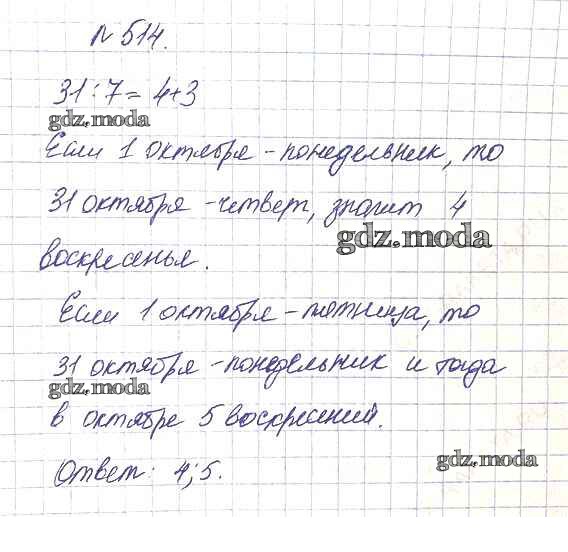 N 514.
31:7= 4+3
gdz.moda
Если 1 октября - понедельник, то
31 октября - четверг, значит 4
gdz.moda
воскресенья.
Если 1 октября - пятница, то
31 октября - понедельник и тогда
gdz.moda
в октябре 5 воскресений.
gdz.moda
Ответ: 4; 5.